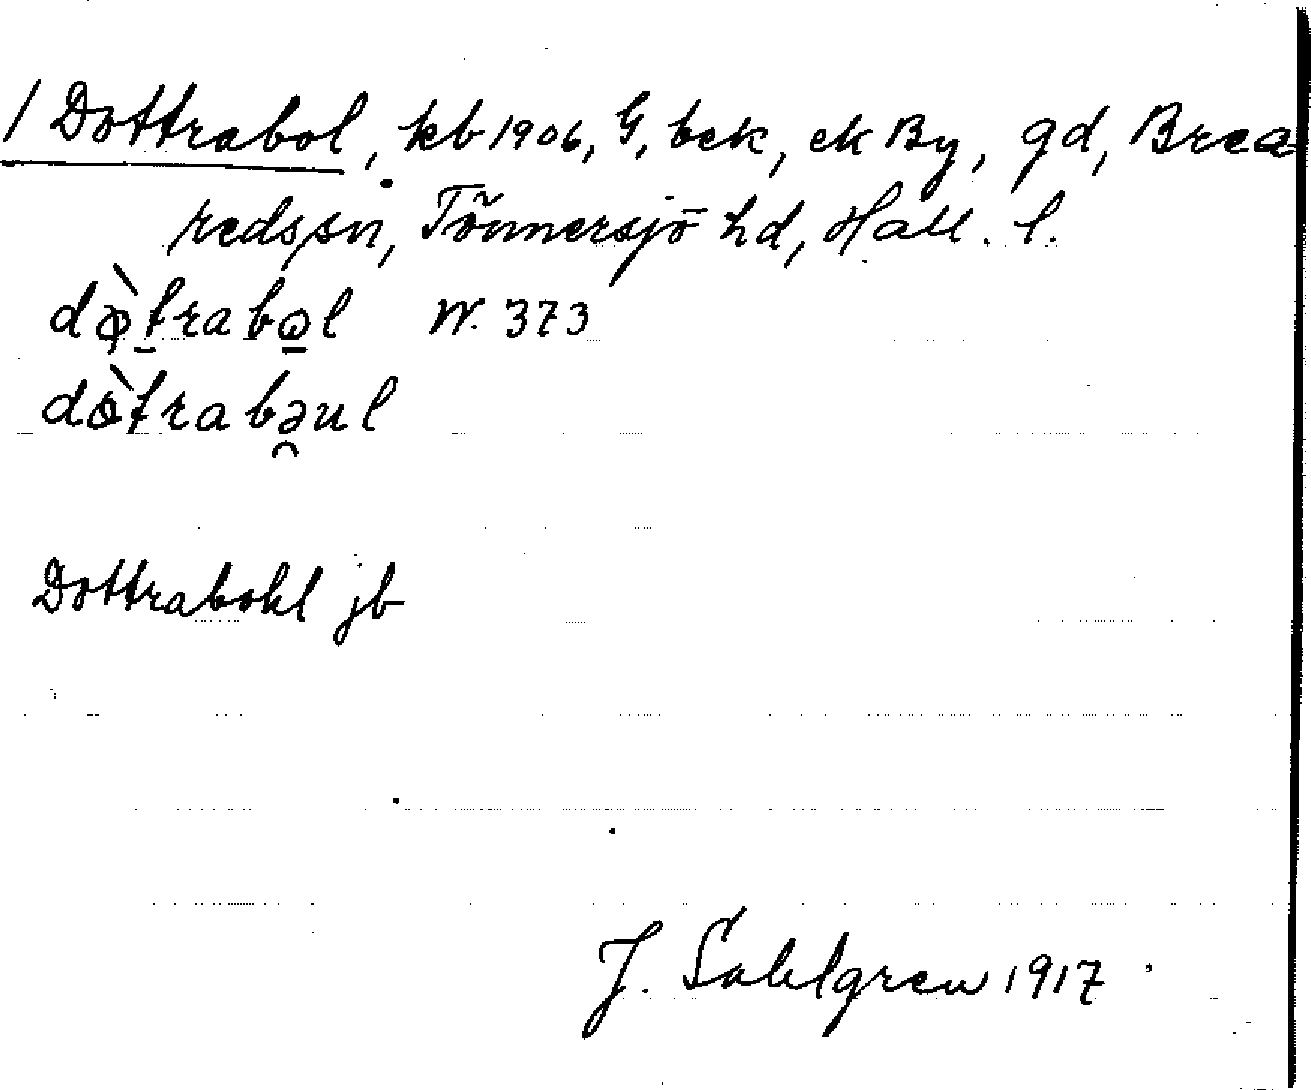 / Dottrabol, kb 1906, G, bek, ek By, gd, Brea
redssn, Tönnersjö hd, Hall. l.
dòtrabol W. 373
dòtrabəul
Dottrabohl jb
J. Sahlgren 1917